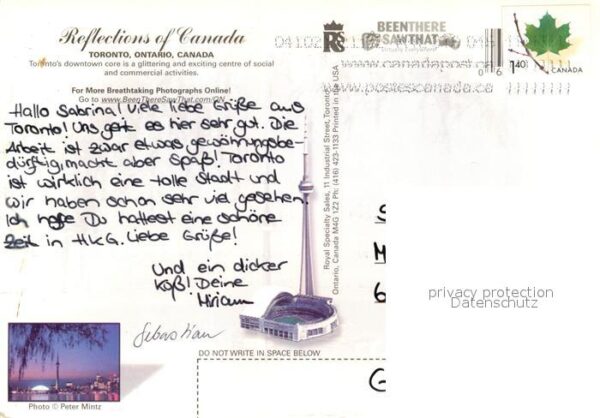 Reflections of Canada
TORONTO, ONTARIO, CANADA
Toronto's downtown core is a glittering and exciting centre of social
and commercial activities.
For More Breathtaking Photographs Online!
Go to www.BeenThereSawThat.com/CN
Hallo Sabrina! Viele liebe Grüße aus
Toronto! Uns geht es hier sehr gut. Die
Arbeit ist zwar etwas gewöhnungsbe-
dürftig, macht aber Spaß! Toronto
ist wirklich eine tolle Stadt und
wir haben schon sehr viel gesehen.
Ich hoffe Du hattest eine schöne
Zeit in HKG. Liebe Grüße!
Und ein dicker
Küß! Deine
Miriam
Sebastian
Photo © Peter Mintz
DO NOT WRITE IN SPACE BELOW
Royal Specialty Sales, 11 Industrial Street, Toronto,
Ontario, Canada M4G 1Z2 Ph: (416) 423-1133 Printed in the USA
RSS
BEENTHERE
SAWTHAT
www.canadapost.ca
www.postescanada.ca
1.40
CANADA
S
M
6
G
privacy protection
Datenschutz